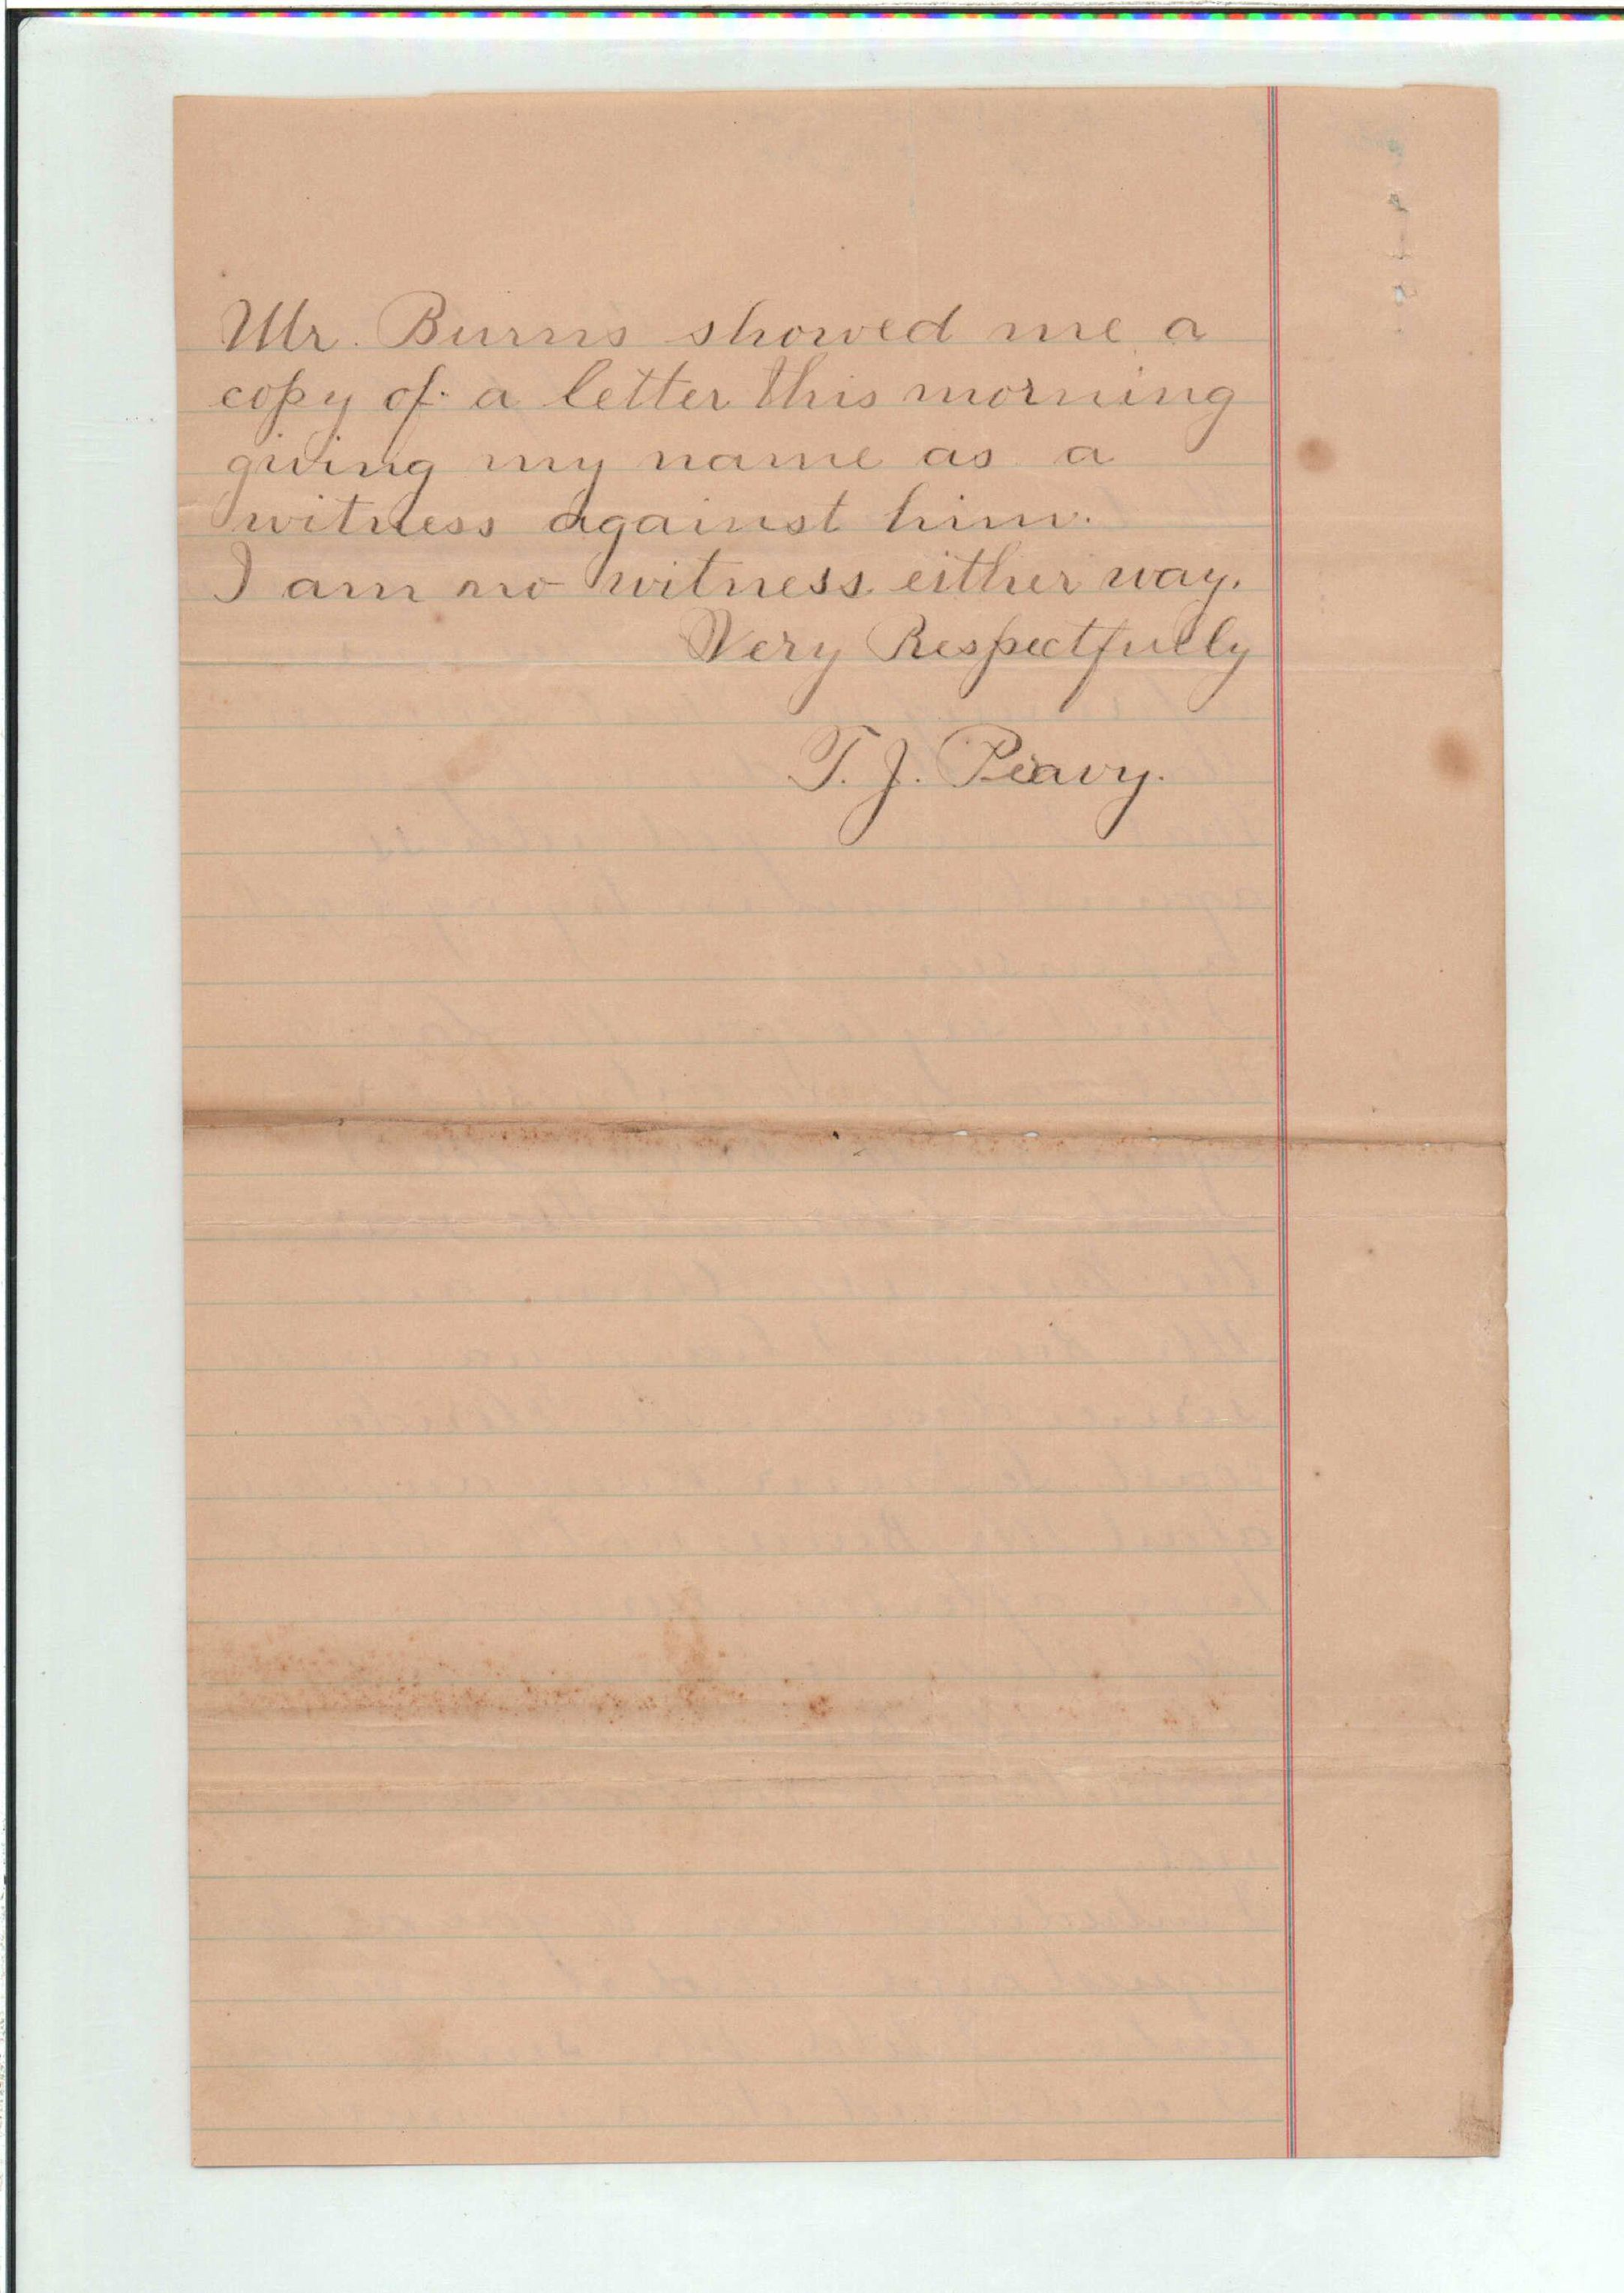 Mr. Burns showed me a
copy of a letter this morning
giving my name as a
witness against him.
I am no witness either way.
Very Respectfully
T. J. Peavy.